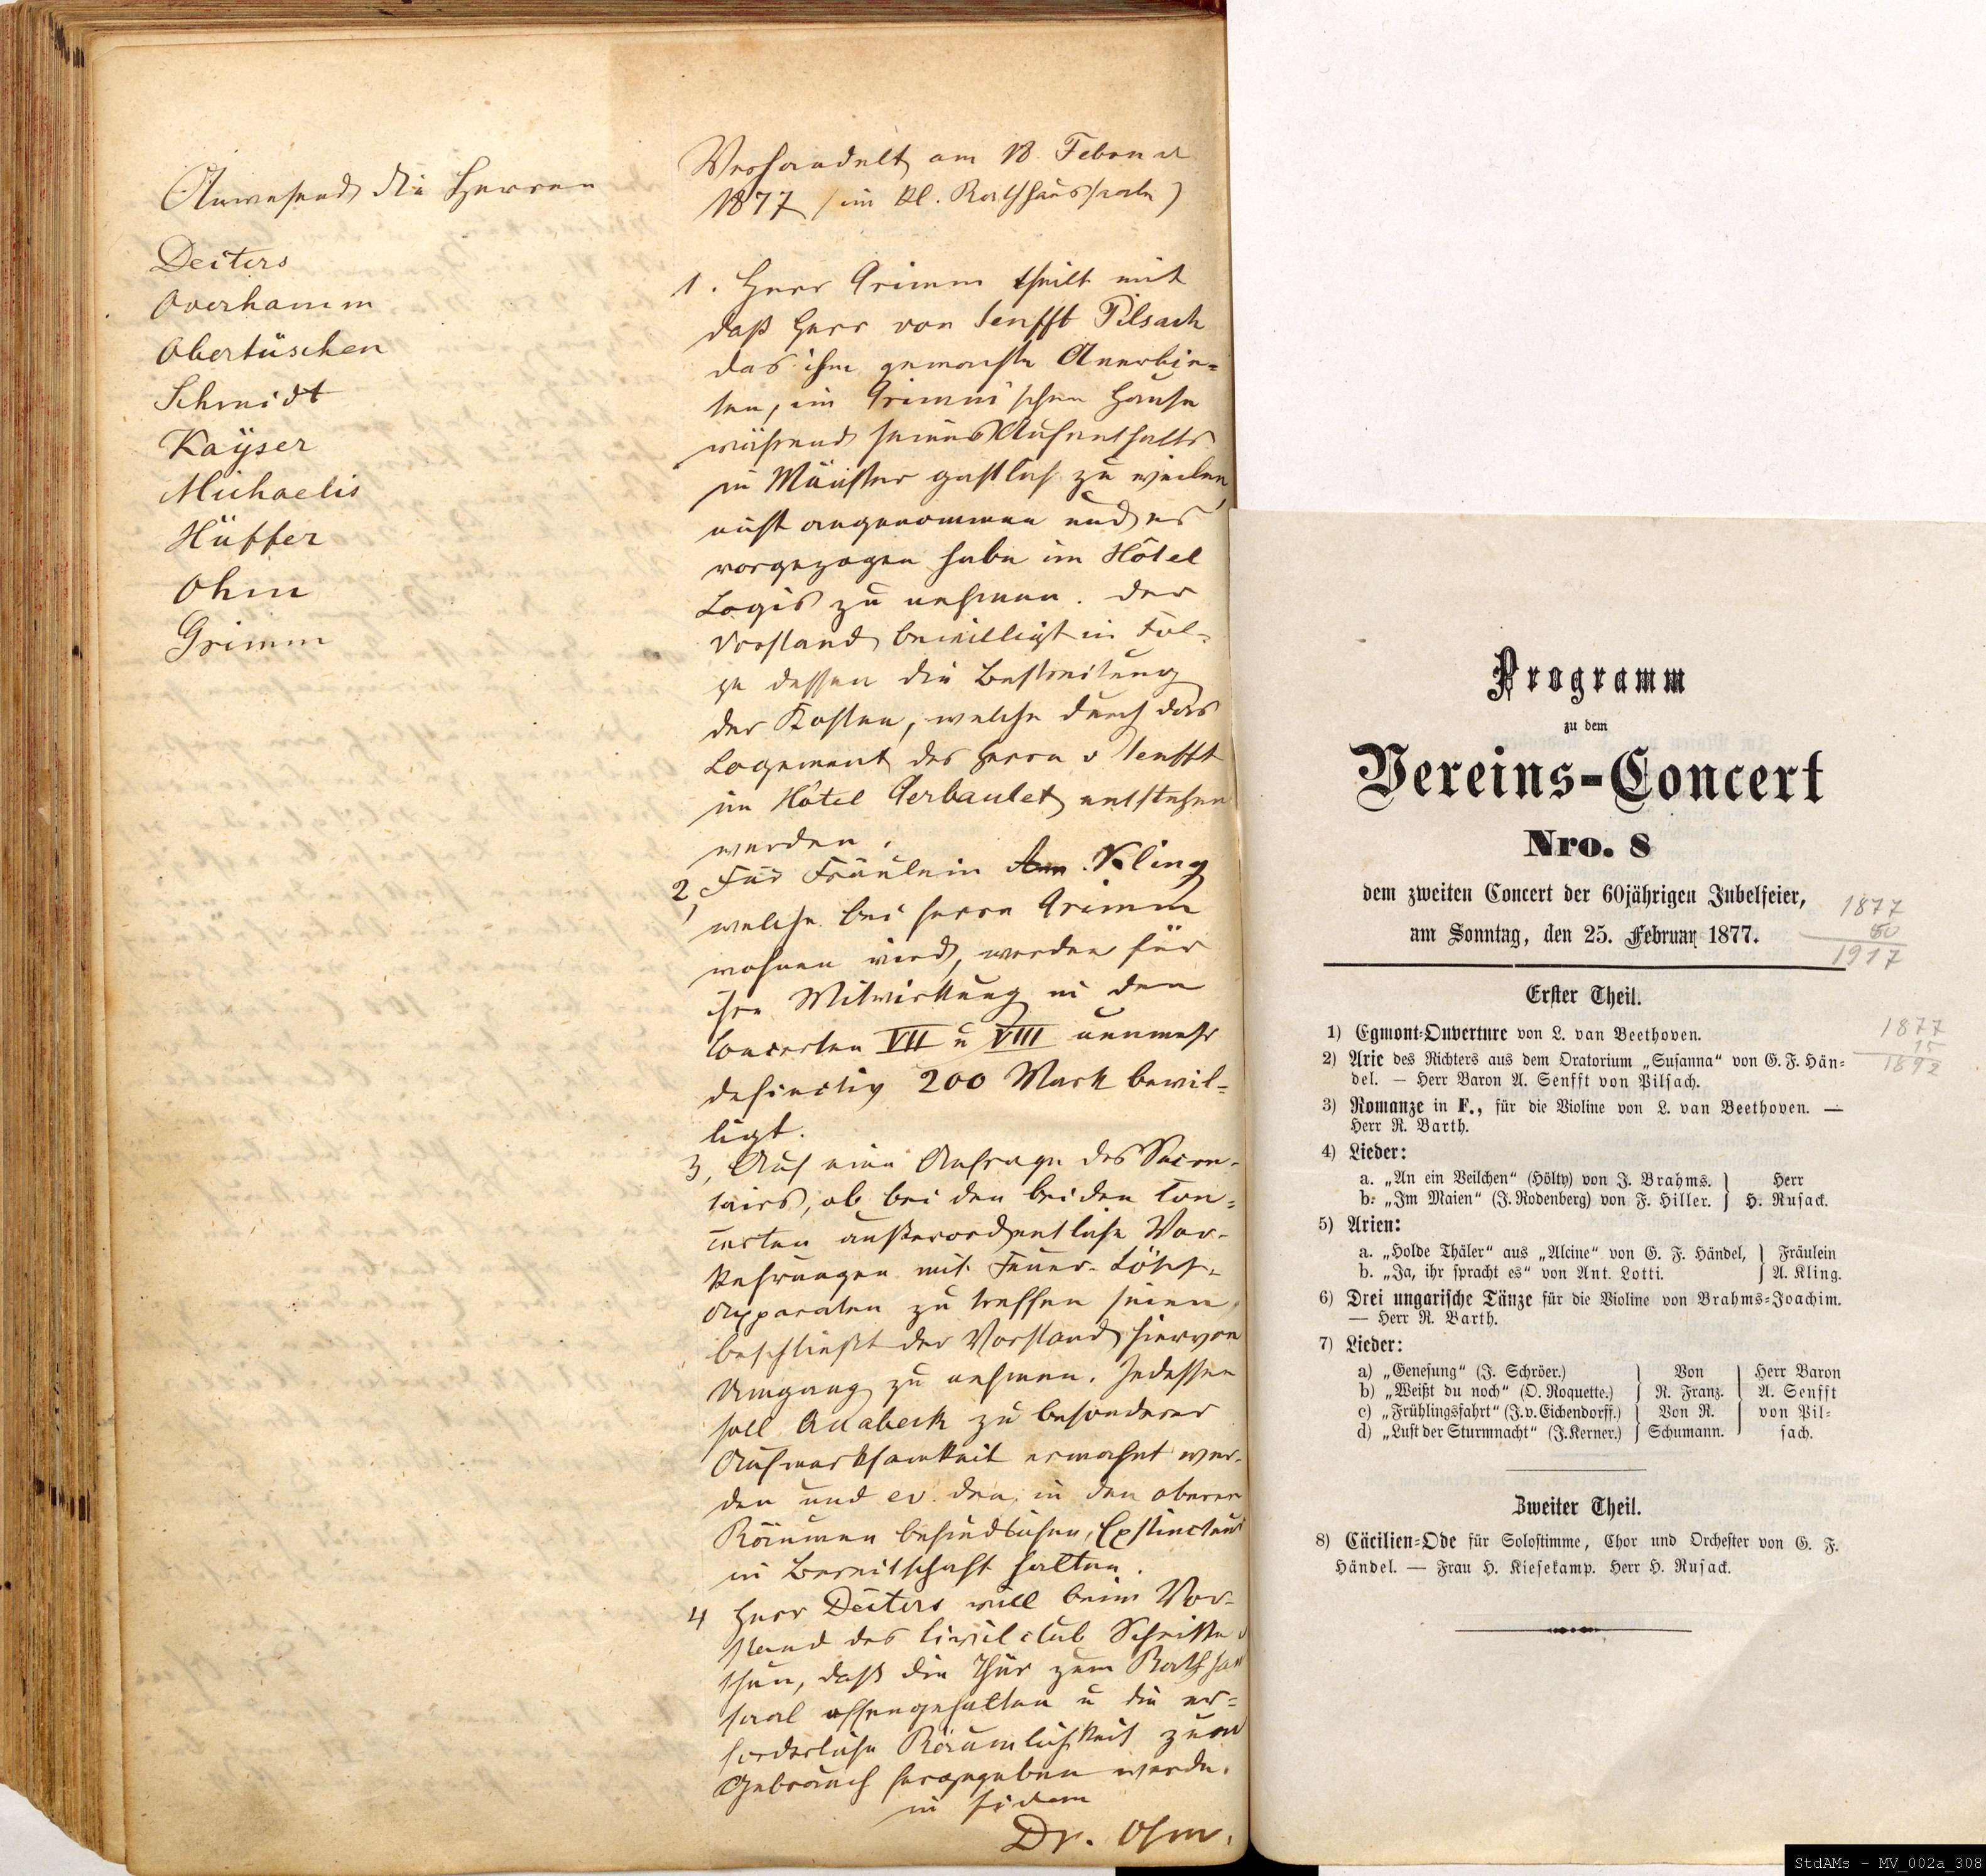 Anwesend die Herren
Deiters
Overhamm
Obertüschen
Schmidt
Kaÿser
Michaelis
Hüffer
Ohm
Grimm
Verhandelt am 18. Februar
1877 (im kl. Rathhaussaale)
1. Herr Grimm theilt mit
daß Herr von Senfft Pilsach
das ihm gemachte Anerbie=
ten, im Grimm'schen Hause
während seines Aufenthalts
in Münster gastlich zu weilen,
nicht angenommen und es
vorgezogen habe im Hôtel
Logis zu nehmen. Der
Vorstand bewilligt in Fol=
ge dessen die Bestreitung
der Kosten, welche durch das
Logement des Herrn v Senfft
im Hôtel Gerbaulet entstehen
werden.
2, Für Fräulein Kling
welche bei Herrn Grimm
wohnen wird, werden für
ihre Mitwirkung in den
Concerten VII u VIII nunmehr
definitiv 200 Mark bewil=
ligt.
3, Auf eine Anfrage des Secre=
tairs, ob bei den beiden Con=
certen außerordentliche Vor=
kehrungen mit Feuer-Lösch=
Apparaten zu treffen seien,
beschließt der Vorstand hiervon
Umgang zu nehmen. Indessen
soll Quabeck zu besonderer
Aufmerksamkeit ermahnt wer=
den und ev. den in den oberen
Räumen befindlichen Extincteur
in Bereitschaft halten.
4 Herr Deiters will beim Vor=
stand des Civilclub Schritte
thun, daß die Thür zum Rathhaus
saal offengehalten u die er=
forderliche Räumlichkeit zum
Gebrauch hergegeben werde.
in fidem
Dr. Ohm.
Programm
zu dem
Vereins-Concert
Nro. 8
dem zweiten Concert der 60jährigen Jubelfeier,
am Sonntag, den 25. Februar 1877.
1877
1917
Erster Theil.
1877
15
1892
1) Egmont-Ouverture von L. van Beethoven.
2) Arie des Richters aus dem Oratorium „Susanna“ von G. F. Hän=
del. — Herr Baron A. Senfft von Pilsach.
3) Romanze in F., für die Violine von L. van Beethoven. —
Herr R. Barth.
4) Lieder:
a. „An ein Veilchen“ (Hölty) von J. Brahms. } Herr
b. „Im Maien“ (J. Rodenberg) von F. Hiller. } H. Rusack.
5) Arien:
a. „Holde Thäler“ aus „Alcine“ von G. F. Händel, } Fräulein
b. „Ja, ihr spracht es“ von Ant. Lotti. } A. Kling.
6) Drei ungarische Tänze für die Violine von Brahms-Joachim.
— Herr R. Barth.
7) Lieder:
a) „Genesung“ (J. Schröer.) } Von } Herr Baron
b) „Weißt du noch“ (O. Roquette.) } R. Franz. } A. Senfft
c) „Frühlingsfahrt“ (J. v. Eichendorff.) } Von R. } von Pil=
d) „Lust der Sturmnacht“ (J. Kerner.) } Schumann. } sach.
Zweiter Theil.
8) Cäcilien-Ode für Solostimme, Chor und Orchester von G. F.
Händel. — Frau H. Kiesekamp. Herr H. Rusack.
StdAMs - MV_002a_308